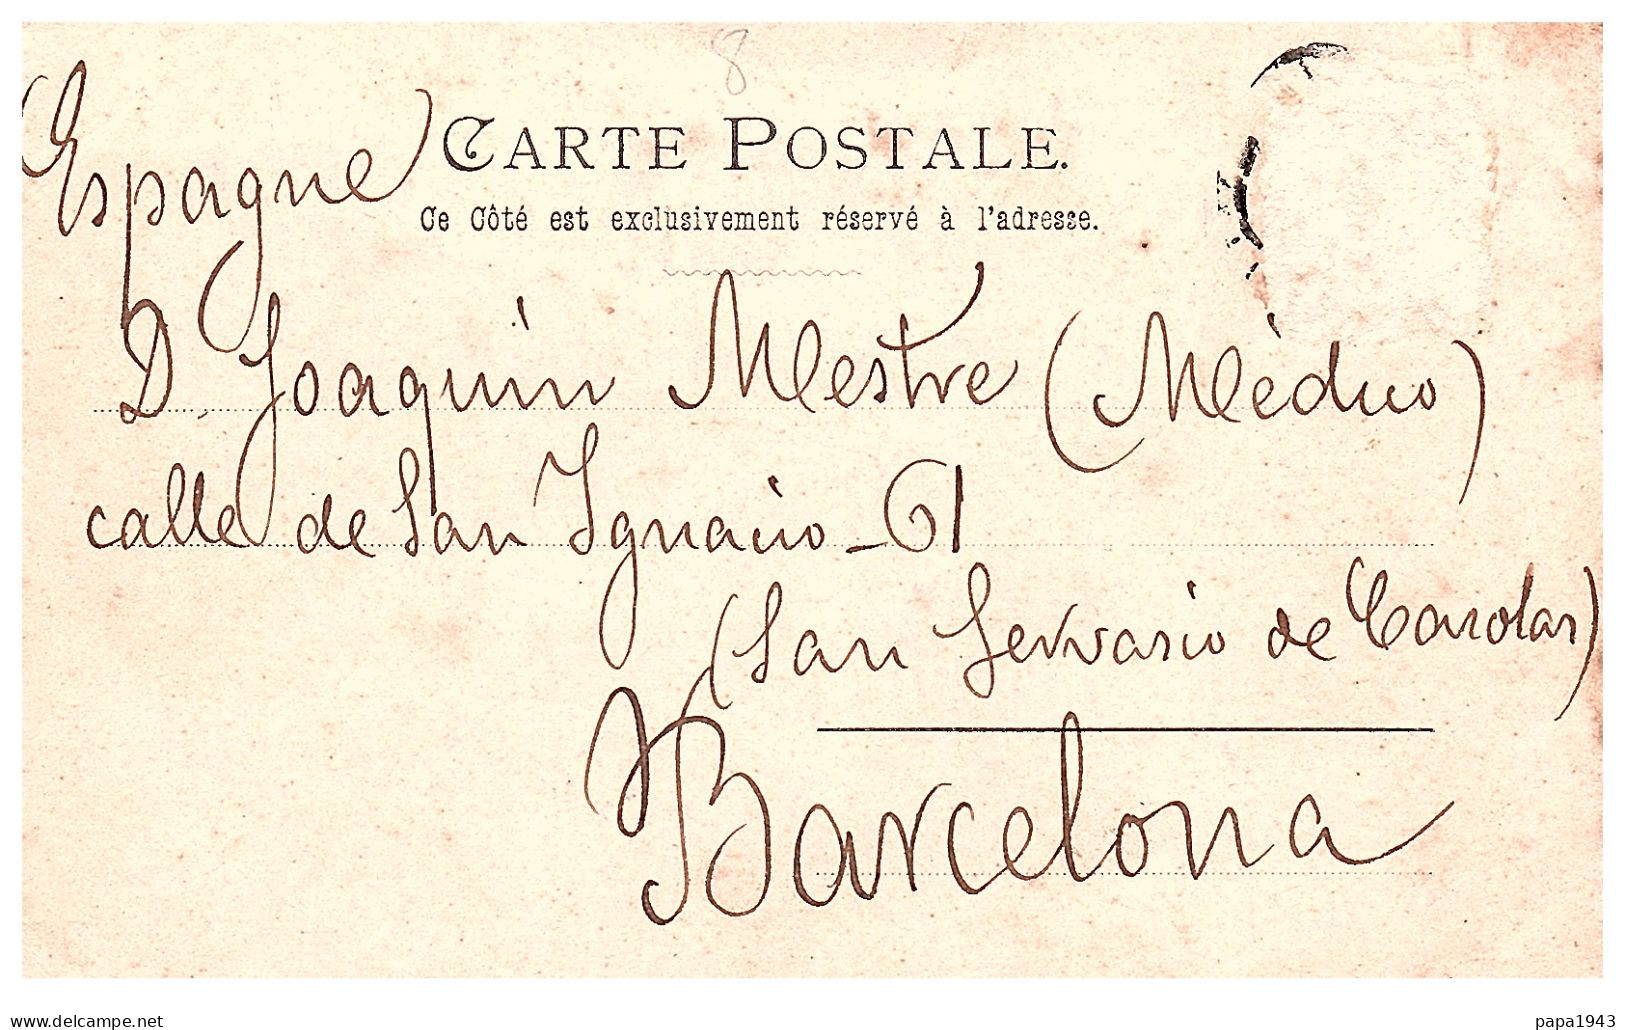 8
(Espagne)
CARTE POSTALE.
Ce Côté est exclusivement réservé à l'adresse.
D. Joaquin Mestre (Mèdico)
calle de San Ignacio - 61
(San Gervasio de Casolas)
Barcelona
www.delcampe.net
papa1943